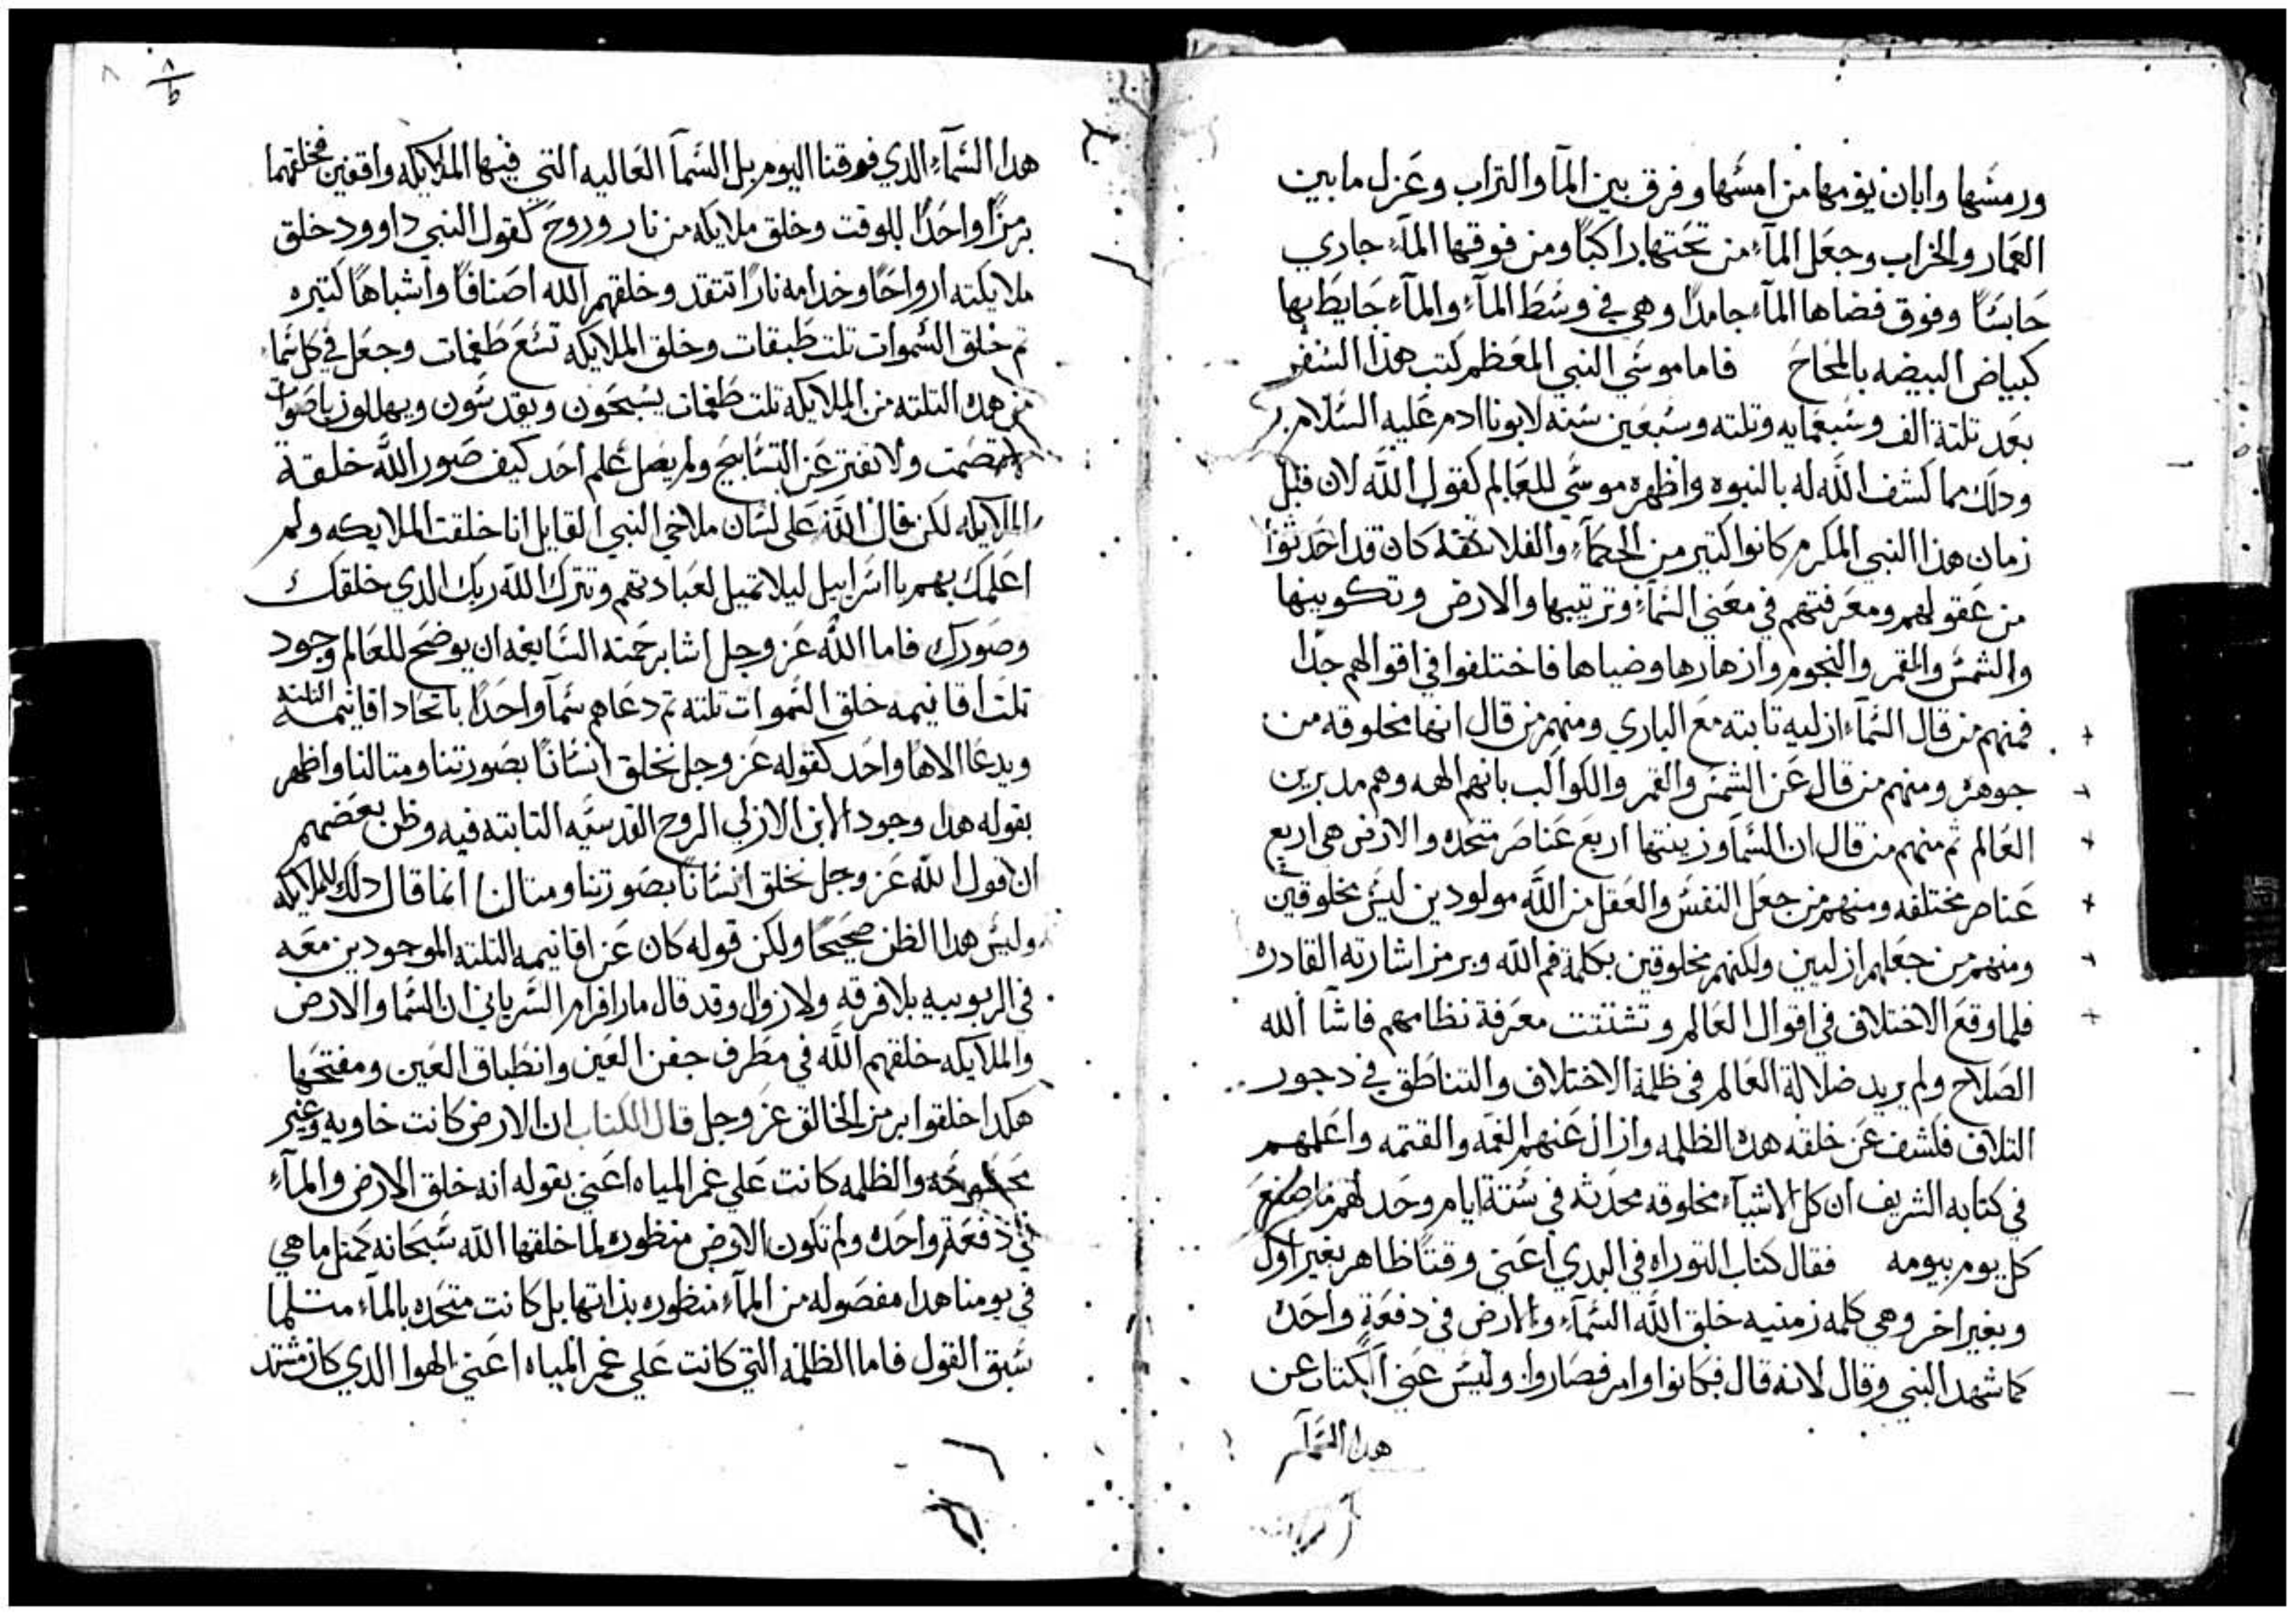 ورمشها وابان يومها من امسها وفرق بين المآ والتراب وعزل مابين
العمار والخراب وجعل المآء من تحتها راكباً ومن فوقها المآء جاري
حابسًا وفوق فضاها المآء جامداً وهي في وسط المآء والمآء حايط بها
كبياض البيضه بالمحاح فاما موسي النبي المعظم كتب هذا السفر
بعد تلتة الف وسبعمايه وتلته وسبعين سنه لابونا ادم عليه السلام
ودلك مما كشف الله له بالنبوه واظهره موسي للعالم كقول الله لان قبل
زمان هذا النبي المكرم كانوا كتير من الحكمآء والفلاسفه كان قد احدثوا
من عقولهم ومعرفتهم في معني السمآء وترتيبها والارض وتكوينها
والشمس والقمر والنجوم وازهارها وضياها فاختلفوا في اقوالهم جداً
فمنهم من قال السمآء ازليه تابته مع الباري ومنهم من قال انها مخلوقه من
جوهره ومنهم من قال عن الشمس والقمر والكواكب بانهم الهه وهم مدبرين
العالم تم منهم من قال ان السمآ وزينتها اربع عناصر متحده والارض هي اربع
عناصر مختلفه ومنهم من جعل النفس والعقل من الله مولودين ليس مخلوقين
ومنهم من جعلهم ازليين ولكنهم مخلوقين بكلمة فم الله وبرمز اشارته القادره
فلما وقع الاختلاف في اقوال العالم وتشتتت معرفة نظامهم فاشآ الله
الصلاح ولم يريد ضلالة العالم في ظلمة الاختلاف والتناطق في دجور
التلاف فكشف عن خلقه هده الظلمه وازال عنهم الغمه والقتمه واعلمهم
في كتابه الشريف ان كل الاشيآء مخلوقه محدثه في ستة ايام وحد لهم ما صنع
كل يوم بيومه فقال كتاب التوراه في البدي اعني وقتاً ظاهر بغير اول
وبغير اخر وهي كلمه زمنيه خلق الله السمآء والارض في دفعةٍ واحده
كما شهد النبي وقال لانه قال فكانوا وامر فصاروا وليس عني الكتاب عن
هدا السمآء
٨
هدا السمآء الدي فوقنا اليوم بل السمآ العاليه التي فيها الملايكه واقفين فخلقهما
برمزاً واحداً للوقت وخلق ملايكه من نار وروح كقول النبي داوود خلق
ملايكته ارواحًا وخدامه نارًا تتقد وخلقهم الله اصنافًا واشباهًا كتيره
تم خلق السموات تلت طبقات وخلق الملايكه تسع طغمات وجعل في كل سمآء
من هده التلته من الملايكه تلت طغمات يسبحون ويقدسون ويهللون باصوات
لا تصمت ولا تفتر عن التسابيح ولم يصل علم احد كيف صور الله خلقة
الملايكه لكن قال الله على لسان ملاخي النبي القايل انا خلقت الملايكه ولم
اعلمك بهم يا اسراييل ليلا تميل لعبادتهم وتترك الله ربك الدي خلقك
وصورك فاما الله عز وجل اشا برحمته السابغه ان يوضح للعالم وجود
تلت اقانيمه خلق السموات تلته تم دعاهم سمآ واحداً باتحاد اقانيمه التلته
ويدعا الاهًا واحد كقوله عز وجل نخلق انسانًا بصورتنا ومتالنا واظهر
بقوله هدا وجود الابن الازلي الروح القدسيه التابته فيه وظن بعضهم
ان قول الله عز وجل نخلق انسانًا بصورتنا ومتالنا انما قال دلك للملايكه
وليس هدا الظن صحيحًا ولكن قوله كان عن اقانيمه التلته الموجودين معه
في الربوبيه بلا فرقه ولا زوال وقد قال مار افرام السرياني ان السما والارض
والملايكه خلقهم الله في مطرف جفن العين وانطباق العين ومفتحها
هكدا خلقوا برمز الخالق عز وجل قال الكتاب ان الارض كانت خاويه وغير
والظلمه كانت علي غمر المياه اعني بقوله انه خلق الارض والمآء
في دفعةٍ واحده ولم تكون الارض منظوره لما خلقها الله سبحانه كمتل ما هي
في يومنا هدا مفصوله من المآء منظوره بذاتها بل كانت متحده بالمآء متلما
سبق القول فاما الظلمه التي كانت علي غمر المياه اعني الهوا الدي كان مستد